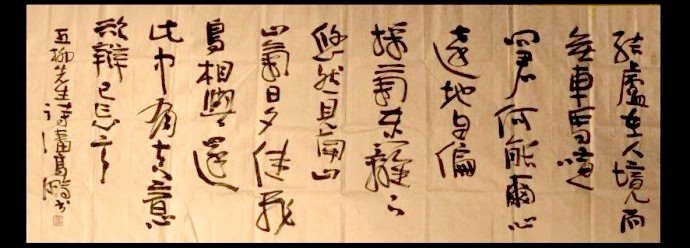 結廬在人境而
無車馬喧
問君何能爾心
遠地自偏
採菊東籬下
悠然見南山
山氣日夕佳飛
鳥相與還
此中有真意
欲辯已忘言
五柳先生詩